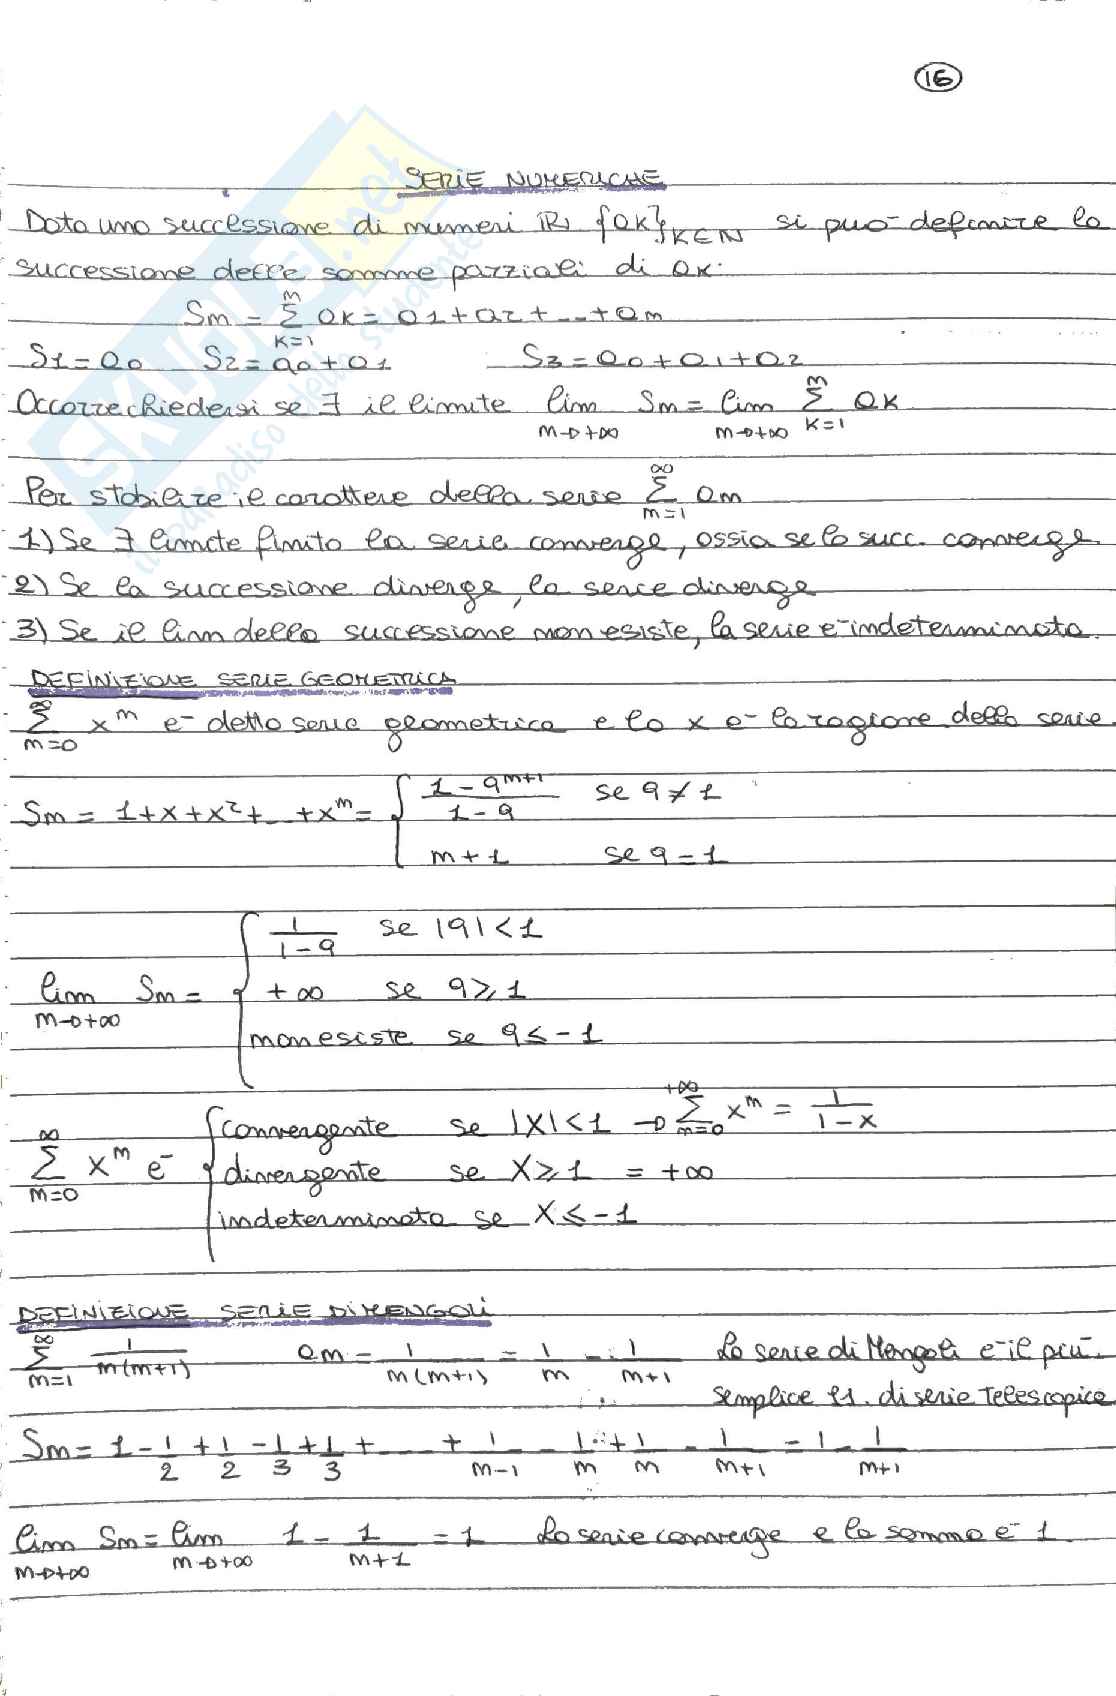 16
SERIE NUMERICHE
Data una successione di numeri ℝ {ak}K∈N si può definire la
successione delle somme parziali di ak.
Sm = Σ_{k=1}^{m} ak = a1 + a2 + ... + am
S1 = a0 S2 = a0 + a1 S3 = a0 + a1 + a2
Occorre chiedersi se ∃ il limite lim_{m→+∞} Sm = lim_{m→+∞} Σ_{k=1}^{m} ak
Per stabilire il carattere della serie Σ_{m=1}^{∞} am
1) Se ∃ limite finito la serie converge, ossia se la succ. converge
2) Se la successione diverge, la serie diverge
3) Se il lim della successione non esiste, la serie è indeterminata.
DEFINIZIONE SERIE GEOMETRICA
Σ_{m=0}^{∞} x^m è detta serie geometrica e la x è la ragione della serie.
Sm = 1 + x + x² + ... + x^m = { (1 - q^{m+1})/(1 - q) se q ≠ 1
m + 1 se q = 1
lim_{m→+∞} Sm = { 1/(1 - q) se |q| < 1
+∞ se q ⩾ 1
non esiste se q ⩽ -1
Σ_{m=0}^{∞} x^m è { convergente se |X| < 1 → Σ_{m=0}^{+∞} x^m = 1/(1 - x)
divergente se X ⩾ 1 = +∞
indeterminata se X ⩽ -1
DEFINIZIONE SERIE DI MENGOLI
Σ_{m=1}^{∞} 1/(m(m+1)) am = 1/(m(m+1)) = 1/m - 1/(m+1) La serie di Mengoli è il più
semplice es. di serie Telescopica
Sm = 1 - 1/2 + 1/2 - 1/3 + 1/3 + ... + 1/(m-1) - 1/m + 1/m - 1/(m+1) = 1 - 1/(m+1)
lim_{m→+∞} Sm = lim_{m→+∞} 1 - 1/(m+1) = 1 La serie converge e la somma è 1.
SKUOLA.net
il paradiso dello studente